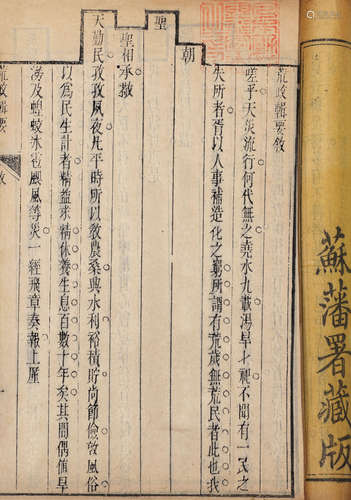 蘇藩署藏版
荒政輯要敘
嗟乎天災流行何代無之堯水九載湯旱七祀不聞有一民之
失所者胥以人事補造化之窮所謂有荒歲無荒民者此也我
朝
聖
聖相承敬
天勤民孜孜夙夜凡平時所以敎農桑興水利裕積貯尚節儉敦風俗
以為民生計者精益求精休養生息百數十年矣其間偶值旱
澇及蝗蝻冰雹颶風等災一經飛章奏報上廑